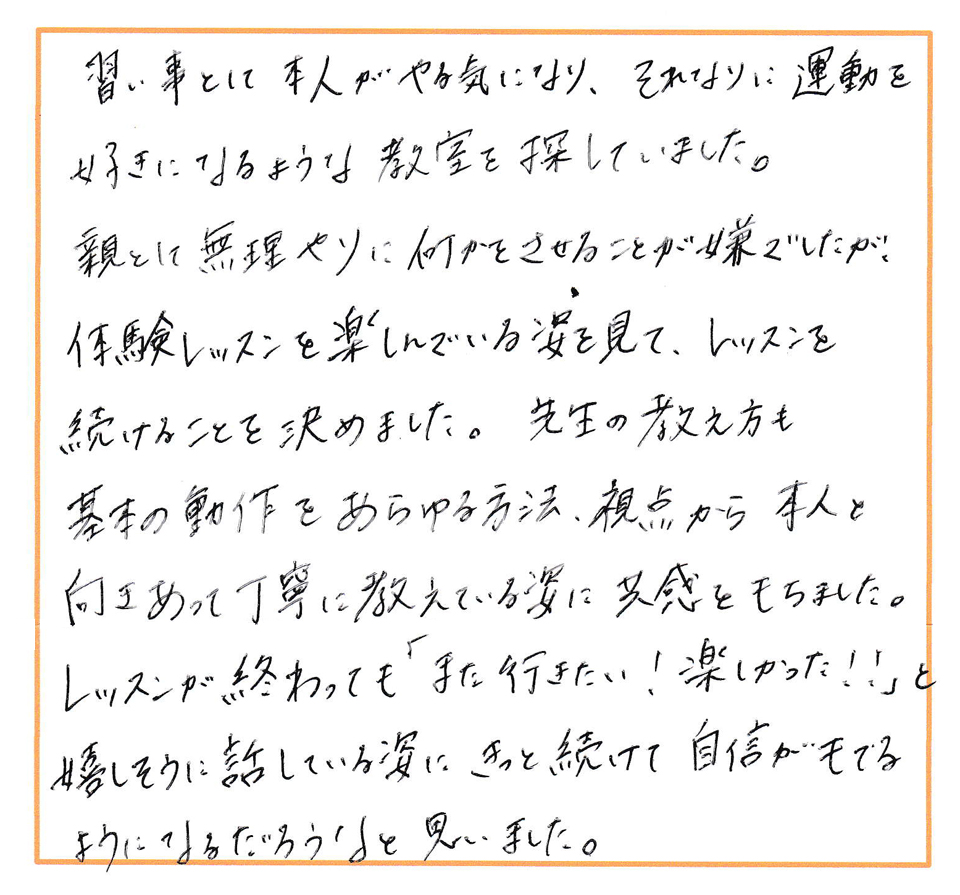 習い事として本人がやる気になり、それなりに運動を
好きになるような教室を探していました。
親として無理やりに何かをさせることが嫌でしたが、
体験レッスンを楽しんでいる姿を見て、レッスンを
続けることを決めました。先生の教え方も
基本の動作をあらゆる方法、視点から本人と
向きあって丁寧に教えている姿に共感をもちました。
レッスンが終わっても「また行きたい！楽しかった!!」と
嬉しそうに話している姿にきっと続けて自信がもてる
ようになるだろうなと思いました。